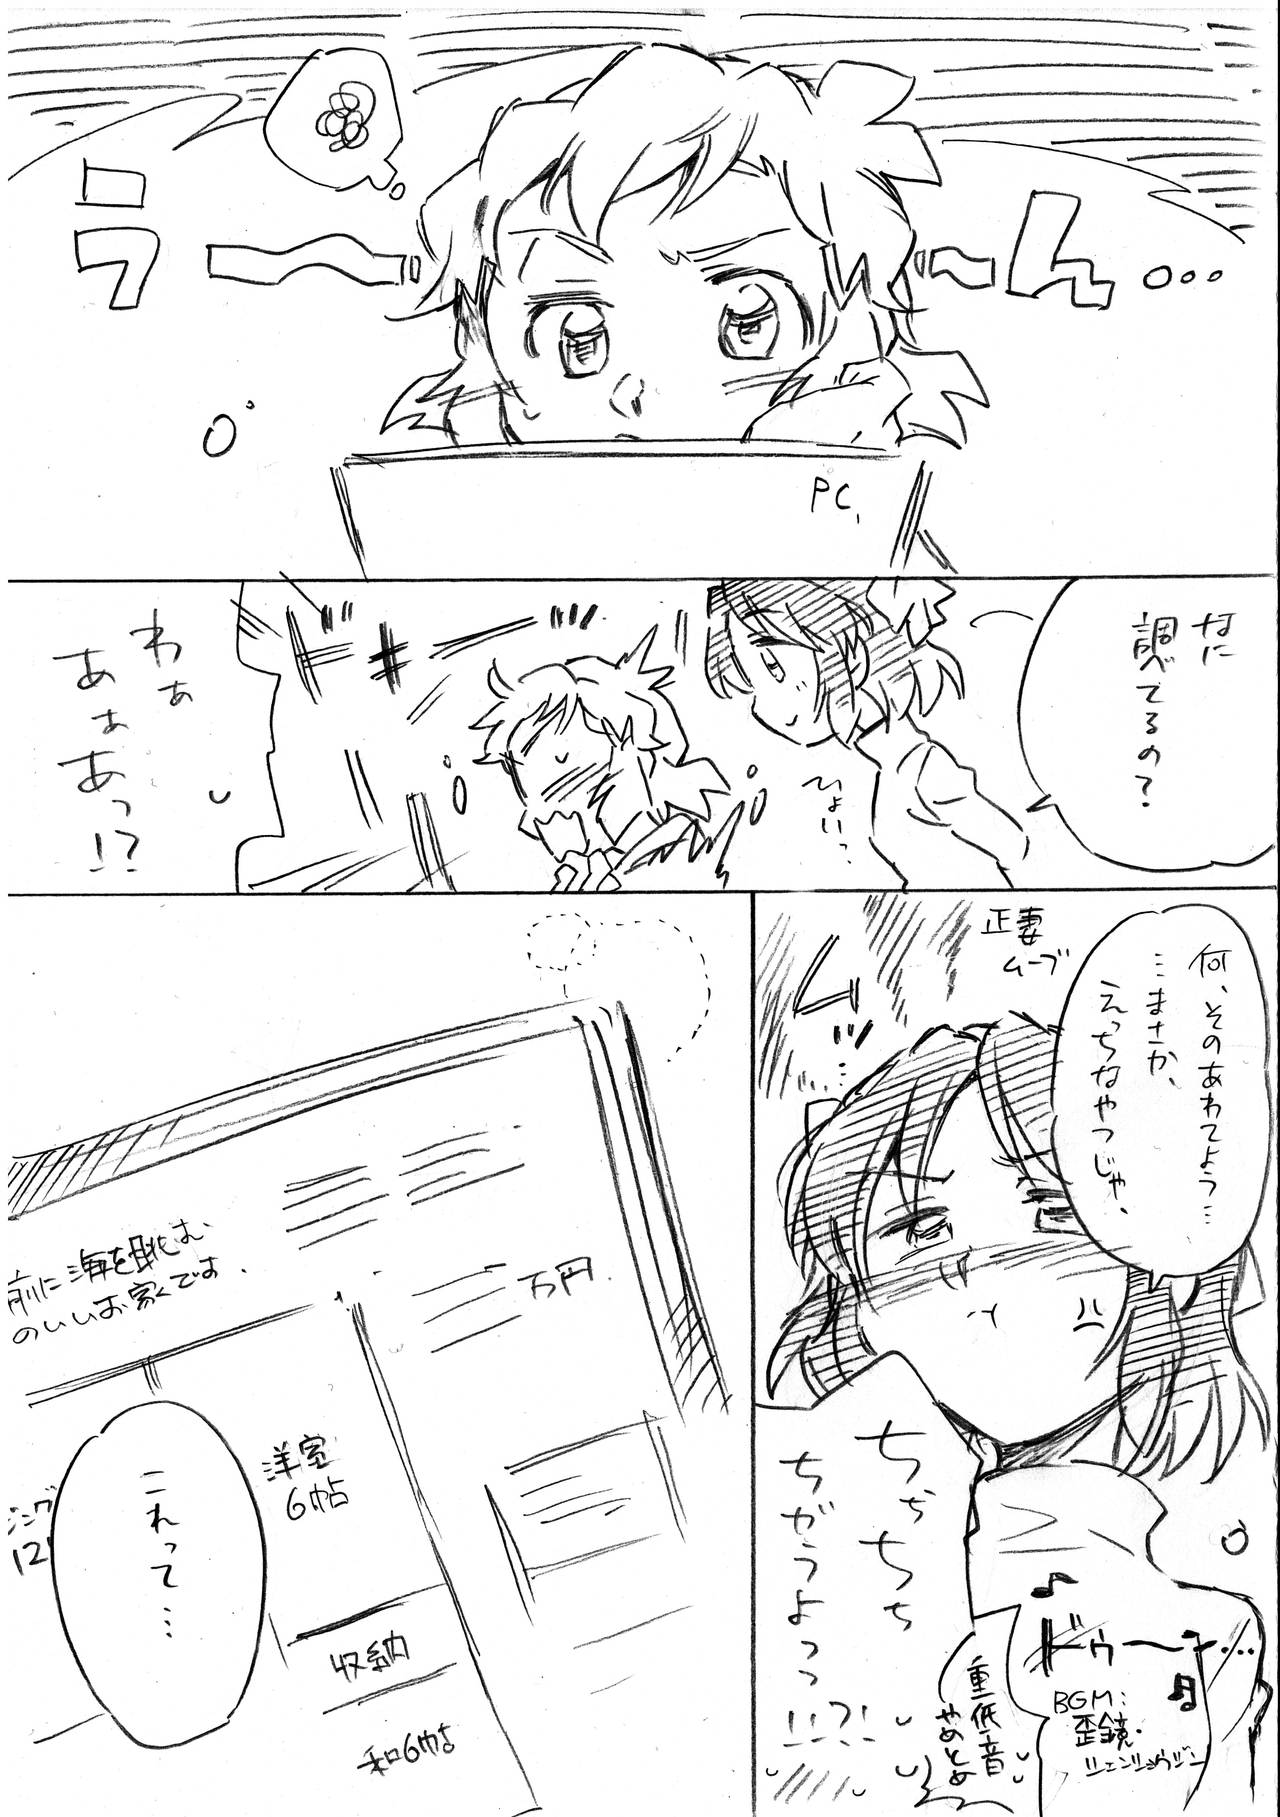 う〜〜ん...
PC
なに
調べてるの?
ひょいっ
わぁ
あぁぁあっ!?
何、そのあわてよう…
…まさか、
えっちなやつじゃ、
正妻
ムーブ
ムッ…
ちちちち
ちがうよっっ
!!?!
♪ドゥーーン…
BGM:
歪鏡・
シェンショウジン
重低音
やめとめ
前に海を眺む
のいいお家です。
万円
洋室
6帖
収納
和6帖
12
これって…